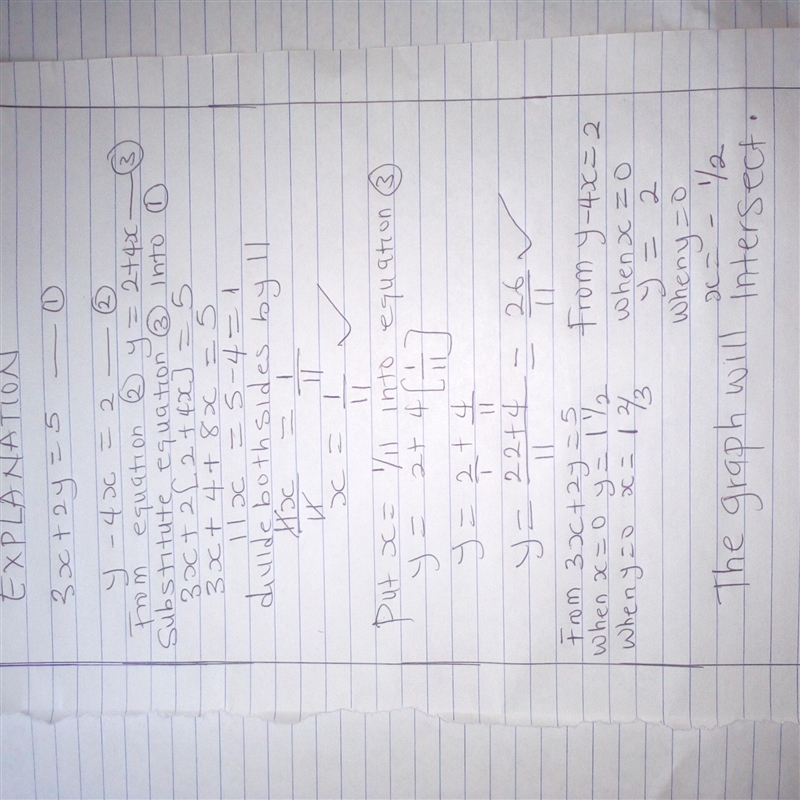 EXPLANATION
3x + 2y = 5 — ①
y - 4x = 2 — ②
From equation ② y = 2+4x — ③
Substitute equation ③ into ①
3x + 2[2+4x] = 5
3x + 4 + 8x = 5
11x = 5 - 4 = 1
divide both sides by 11
11x/11 = 1/11
x = 1/11 ✓
Put x = 1/11 into equation ③
y = 2 + 4[1/11]
y = 2/1 + 4/11
y = 22+4/11 = 26/11 ✓
From 3x + 2y = 5
when x = 0 y = 1 1/2
when y = 0 x = 1 2/3
From y - 4x = 2
when x = 0
y = 2
when y = 0
x = - 1/2
The graph will intersect.